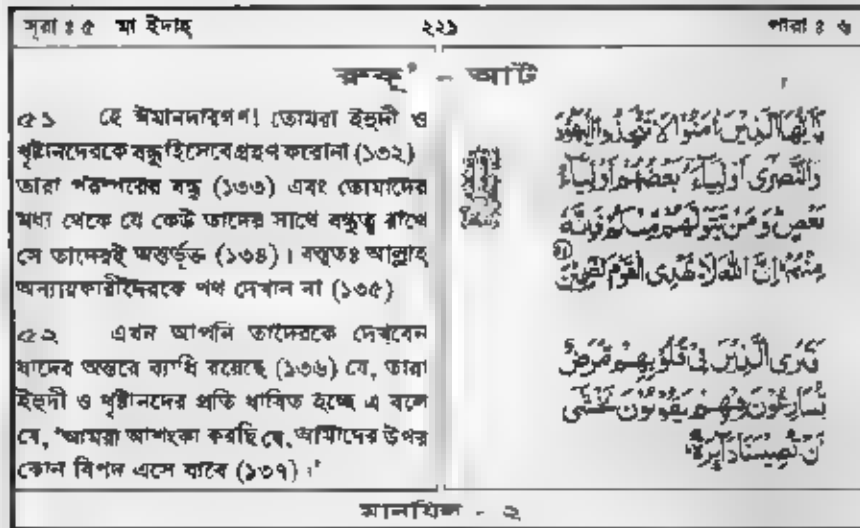 সূরা ঃ ৫ মা ইদাহ্ ২২১ পারা ঃ ৬
রুকূ' - আট
৫১ হে ঈমানদারগণ! তোমরা ইহুদী ও
খৃষ্টানদেরকে বন্ধু হিসেবে গ্রহণ করোনা (১৩২)
তারা পরস্পরের বন্ধু (১৩৩) এবং তোমাদের
মধ্য থেকে যে কেউ তাদের সাথে বন্ধুত্ব রাখে
সে তাদেরই অন্তর্ভূক্ত (১৩৪)। বস্তুতঃ আল্লাহ্
অন্যায়কারীদেরকে পথ দেখান না (১৩৫)
৫২ এখন আপনি তাদেরকে দেখবেন
যাদের অন্তরে ব্যাধি রয়েছে (১৩৬) যে, তারা
ইহুদী ও খৃষ্টানদের প্রতি ধাবিত হচ্ছে এ বলে
যে, 'আমরা আশংকা করছি যে, আমাদের উপর
কোন বিপদ এসে যাবে (১৩৭)।'
يٰٓاَيُّهَا الَّذِيْنَ اٰمَنُوْا لَا تَتَّخِذُوا الْيَهُوْدَ
وَالنَّصٰرٰٓى اَوْلِيَآءَ بَعْضُهُمْ اَوْلِيَآءُ
بَعْضٍ وَمَنْ يَّتَوَلَّهُمْ مِّنْكُمْ فَاِنَّهٗ
مِنْهُمْ اِنَّ اللّٰهَ لَا يَهْدِى الْقَوْمَ الظّٰلِمِيْنَ
فَتَرَى الَّذِيْنَ فِيْ قُلُوْبِهِمْ مَّرَضٌ
يُّسَارِعُوْنَ فِيْهِمْ يَقُوْلُوْنَ نَخْشٰٓى
اَنْ تُصِيْبَنَا دَآئِرَةٌ
মানযিল - ২